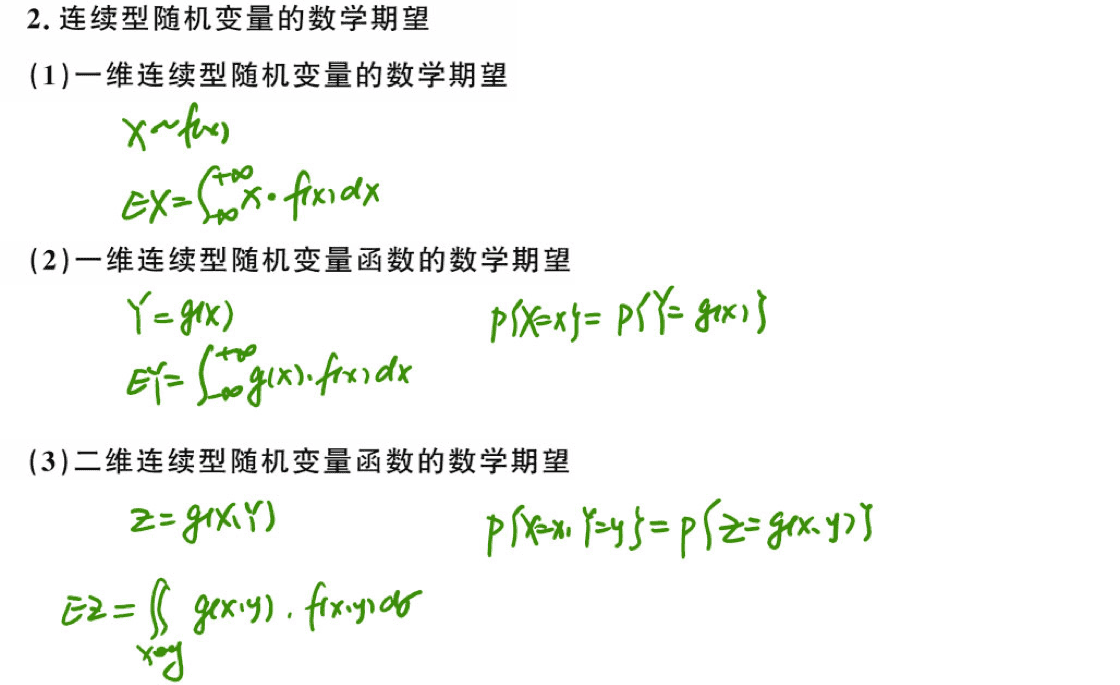 2. 连续型随机变量的数学期望
(1)一维连续型随机变量的数学期望
X~f(x)
EX=∫_{-∞}^{+∞} x·f(x)dx
(2)一维连续型随机变量函数的数学期望
Y=g(X) P{X=x}=P{Y=g(x)}
EY=∫_{-∞}^{+∞} g(x)·f(x)dx
(3)二维连续型随机变量函数的数学期望
Z=g(X,Y) P{X=x,Y=y}=P{Z=g(x,y)}
EZ=∬ g(x,y)·f(x,y)dσ